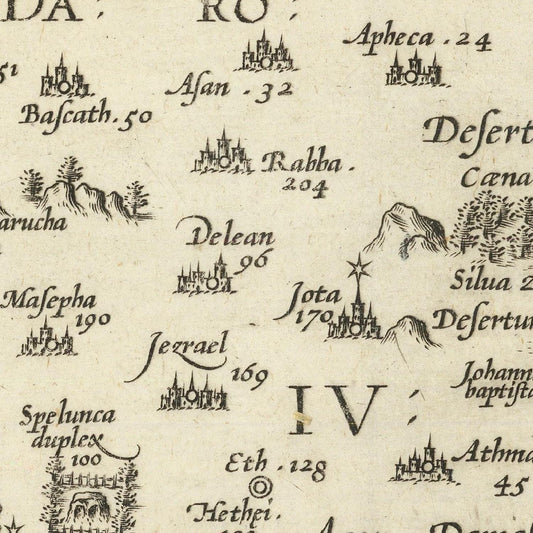 DA:
RO:
Apheca . 24
51
Baſcath . 50
Aſan . 32
Deſert
Rabba .
204
Cæna
arucha
Delean
96
Silua 2
Jota
170
Maſepha
190
Deſertu
Jezrael
169
Johann
baptiſta
IV:
Spelunca
duplex
100
Eth . 128
Athma
45
Hethei .